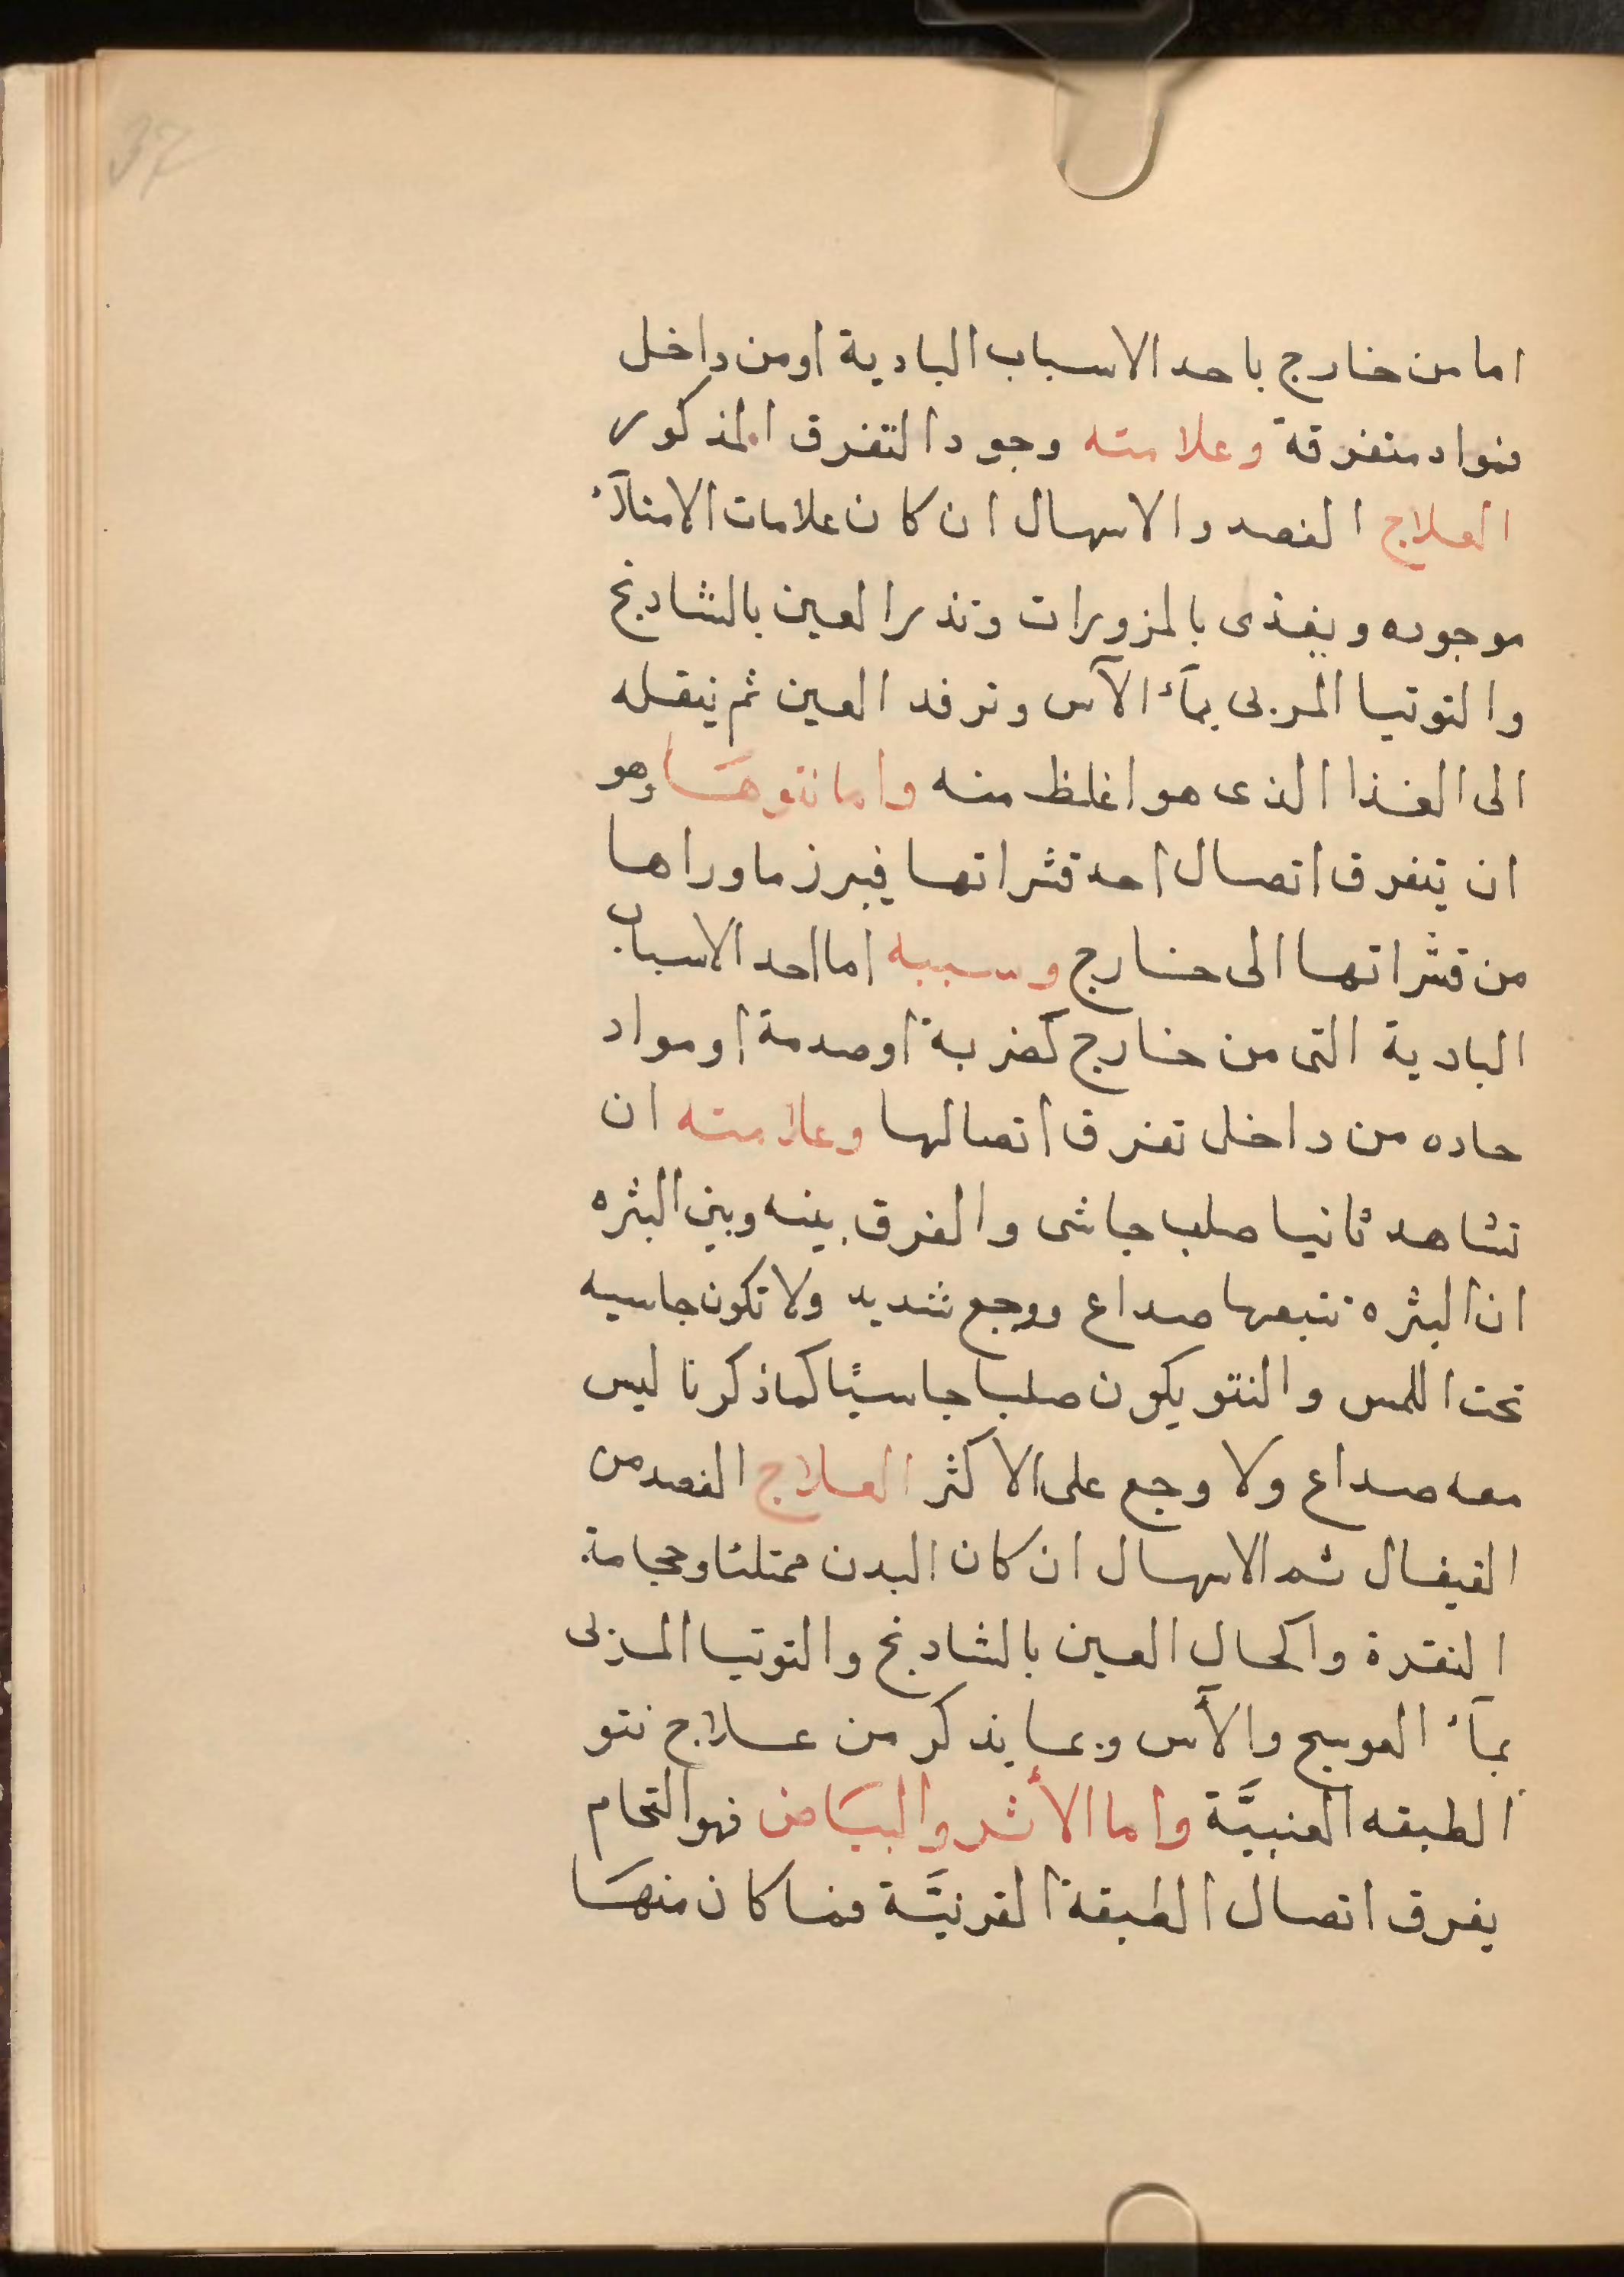 37
اما من خارج باحد الاسباب البادية او من داخل
فمواد متفرقة وعلامته وجود التفرق المذكور
العلاج الفصد والاسهال ان كان علامات الامتلآء
موجوده ويغذى بالمزورات وتذر العين بالشادنج
والتوتيا المربى بمآء الآس وترفد العين ثم ينقله
الى الغذا الذى هو اغلظ منه واما نتوهَا وهو
ان يتفرق اتصال احد قشراتها فيبرز ما وراها
من قشراتها الى خارج وسببه اما احد الاسباب
البادية التى من خارج كضربة او صدمة او مواد
حاده من داخل تفرق اتصالها وعلامته ان
تشاهد ثانيا صلب جاشى والفرق بينه وبين البثره
ان البثره تتبعها صداع ووجع شديد ولا تكون جاسيه
تحت اللمس والنتو يكون صلبا جاسئًا كما ذكرنا ليس
معه صداع ولا وجع على الاكثر العلاج الفصد من
القيفال ثم الاسهال ان كان البدن ممتلئا وحجامة
النقرة واكحال العين بالشادنج والتوتيا المربى
بمآء العوسج والآس وبما يذكر من علاج نتو
الطبقه العنبيَّة واما الأثر والبيَاض فهو التحام
يفرق اتصال الطبقة القرنيَّة فما كان منهَا